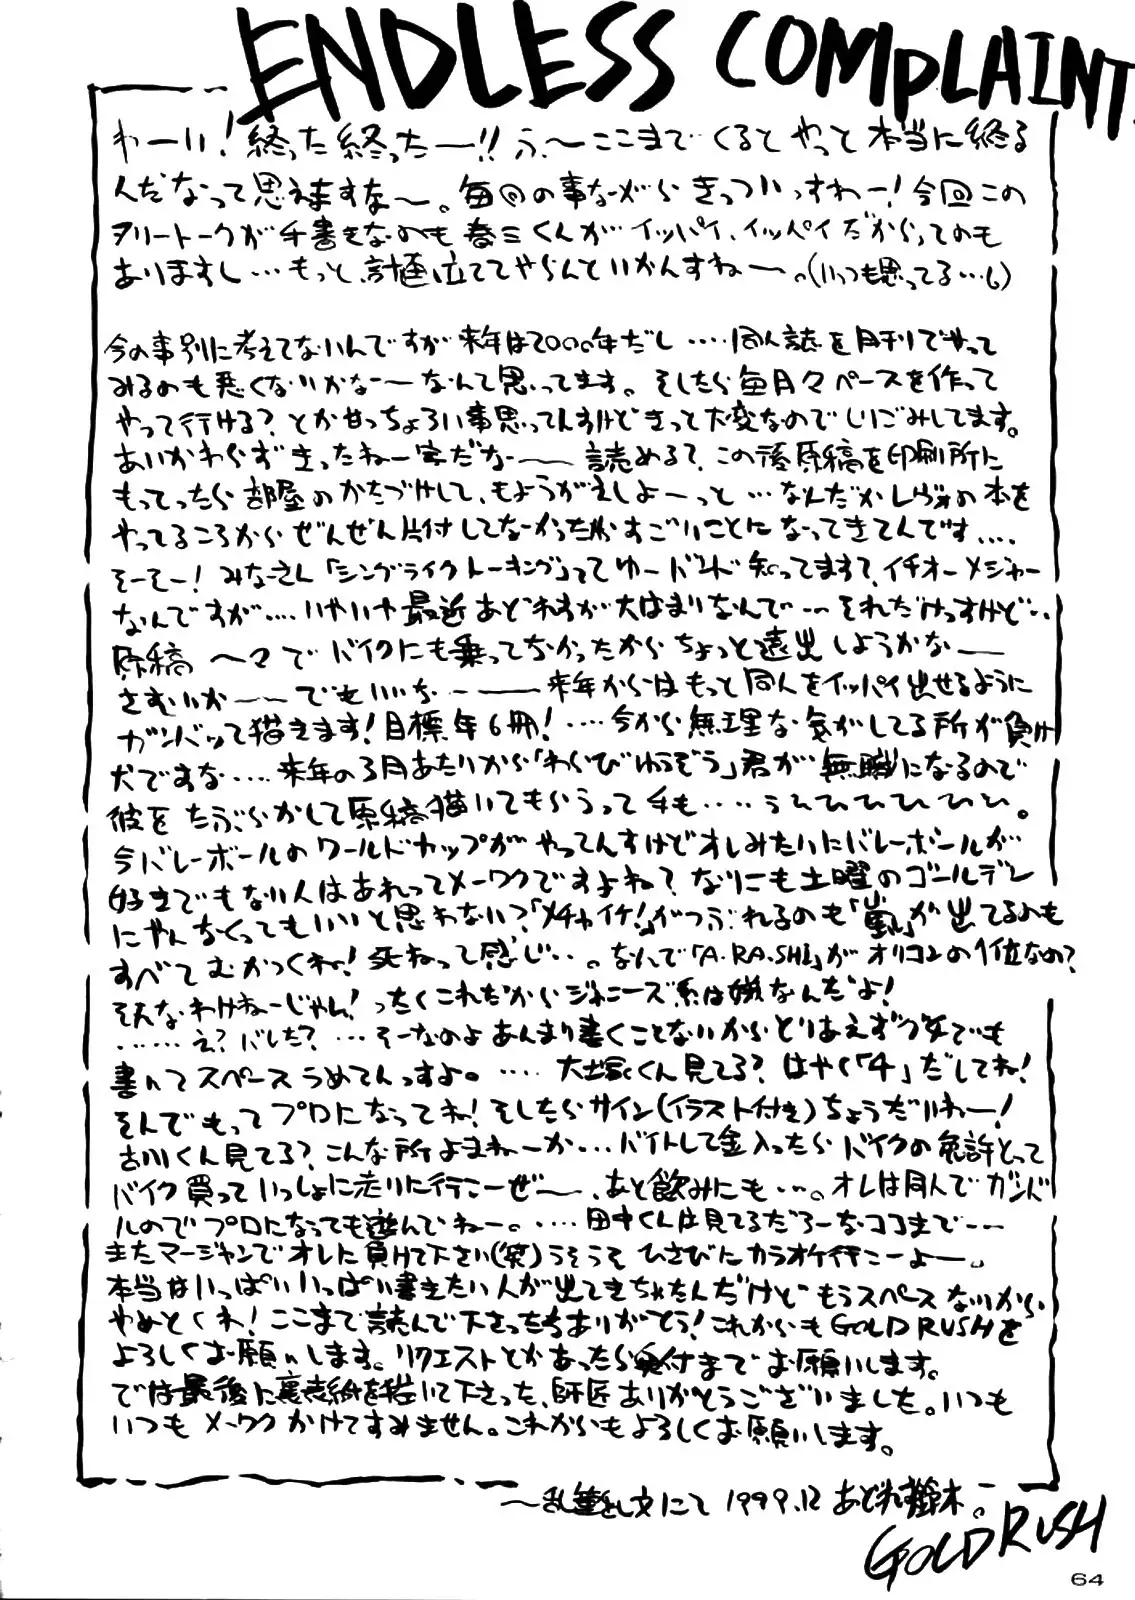 ENDLESS COMPLAINT
わーい!終った終ったー!!ふ〜ここまでくるとやっと本当に終る
んだなって思えますな〜。毎回の事ながらきっついっすわー!今回この
フリートークが手書きなのも春三くんがイッパイ、イッパイだからってのも
ありますし…もっと、計画立ててやらんといかんすねー。(いつも思ってる…)
今の事別に考えてないんですが来年は2000年だし……同人誌を月刊でやって
みるのも悪くないかなーなんて思ってます。そしたら毎月々ペースを作って
やって行ける?とか甘っちょろい事思ってんすけどきっと大変なのでしりごみしてます。
あいかわらずきったねー字だなー 読める?この後原稿を印刷所に
もってったら部屋のかたづけして、もようがえしよーっと…なんだかレヴォの本を
やってるころからぜんぜん片付してなかったからすごいことになってきてんです….
そーそー!みなーさん「シングライクトーキング」ってゆーバンド知ってますて、イチオーメジャー
なんですが….いやいや最近あどれすが大はまりなんで…それだけっすけど…
原稿〜々でバイクにも乗ってなかったからちょっと遠出しようかなー
さむいかー でもいいなー 来年からはもっと同人をイッパイ出せるように
ガンバッて描きます!目標年6冊!….今から無理な気がしてる所が負け
犬ですな….来年の3月あたりから「わらびゆうぞう」君が無職になるので
彼をたぶらかして原稿描いてもらうって手も….うひひひひひひ。
今バレーボールのワールドカップがやってんすけどオレみたいにバレーボールが
好きでもない人はあれってメーワクですよね?なにも土曜のゴールデン
にやんなくてもいいと思わない?「メチャイケ!」がつぶれるのも「嵐」が出てるのも
すべてむかつくね!死ねって感じ…。なんで「A・RA・SHI」がオリコンの1位なの?
そんなわけねーじゃん!ったくこれだからジャニーズ系は嫌なんだよ!
……え?バレた?…そーなのよあんまり書くことないからとりあえずウダでも
書いてスペースうめてんっすよ。….大塚くん見てる?はやく「4」だしてね!
そんでもってプロになってね!そしたらサイン(イラスト付き)ちょうだいねー!
古川くん見てる?こんな所よまねーか…バイトして金入ったらバイクの免許とって
バイク買っていっしょに走りに行こーぜー、あと飲みにも…。オレは同人でガンバ
ルのでプロになっても遊んでねー。….田中くんは見てるだろーなココまで…
またマージャンでオレに負けて下さい(笑)うそうそひさびにカラオケ行こーよー。
本当はいっぱいいっぱい書きたい人が出てきちゃたんだけどもうスペースないから
やめとくね!ここまで読んで下さったちありがとう!これからもGOLD RUSHを
よろしくお願いします。リクエストとかあったら受付までお願いします。
では最後に裏表紙を描いて下さった、師匠ありがとうございました。いつも
いつもメーワクかけてすみません。これからもよろしくお願いします。
〜乱筆乱文にて 1999.12 あどれす鈴木。
GOLD RUSH
64